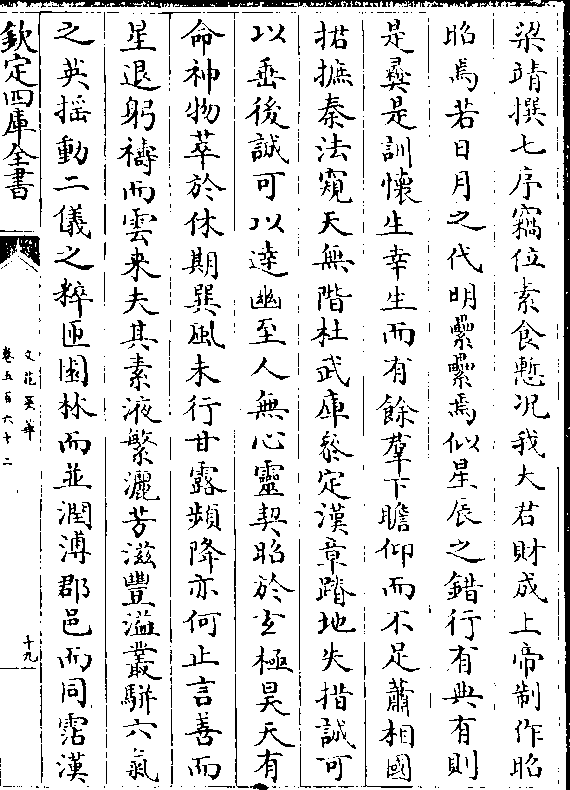 梁靖撰七序竊位素食慙况我大君財成上帝制作昭
昭焉若日月之代明纍纍焉似星辰之錯行有典有則
是彛是訓懷生幸生而有餘羣下瞻仰而不足蕭相國
捃摭秦法窺天無階杜武庫叅定漢章蹐地失措誠可
以垂後誠可以達幽至人無心靈契昭於玄極昊天有
命神物萃於休期巽風未行甘露頻降亦何止言善而
星退躬禱而雲来夫其素液繁灑芳滋豐溢叢駢六氣
之英揺動二儀之粹匝園林而並潤溥郡邑而同霑漢
欽定四庫全書
文苑英華
卷五百六十二
十九